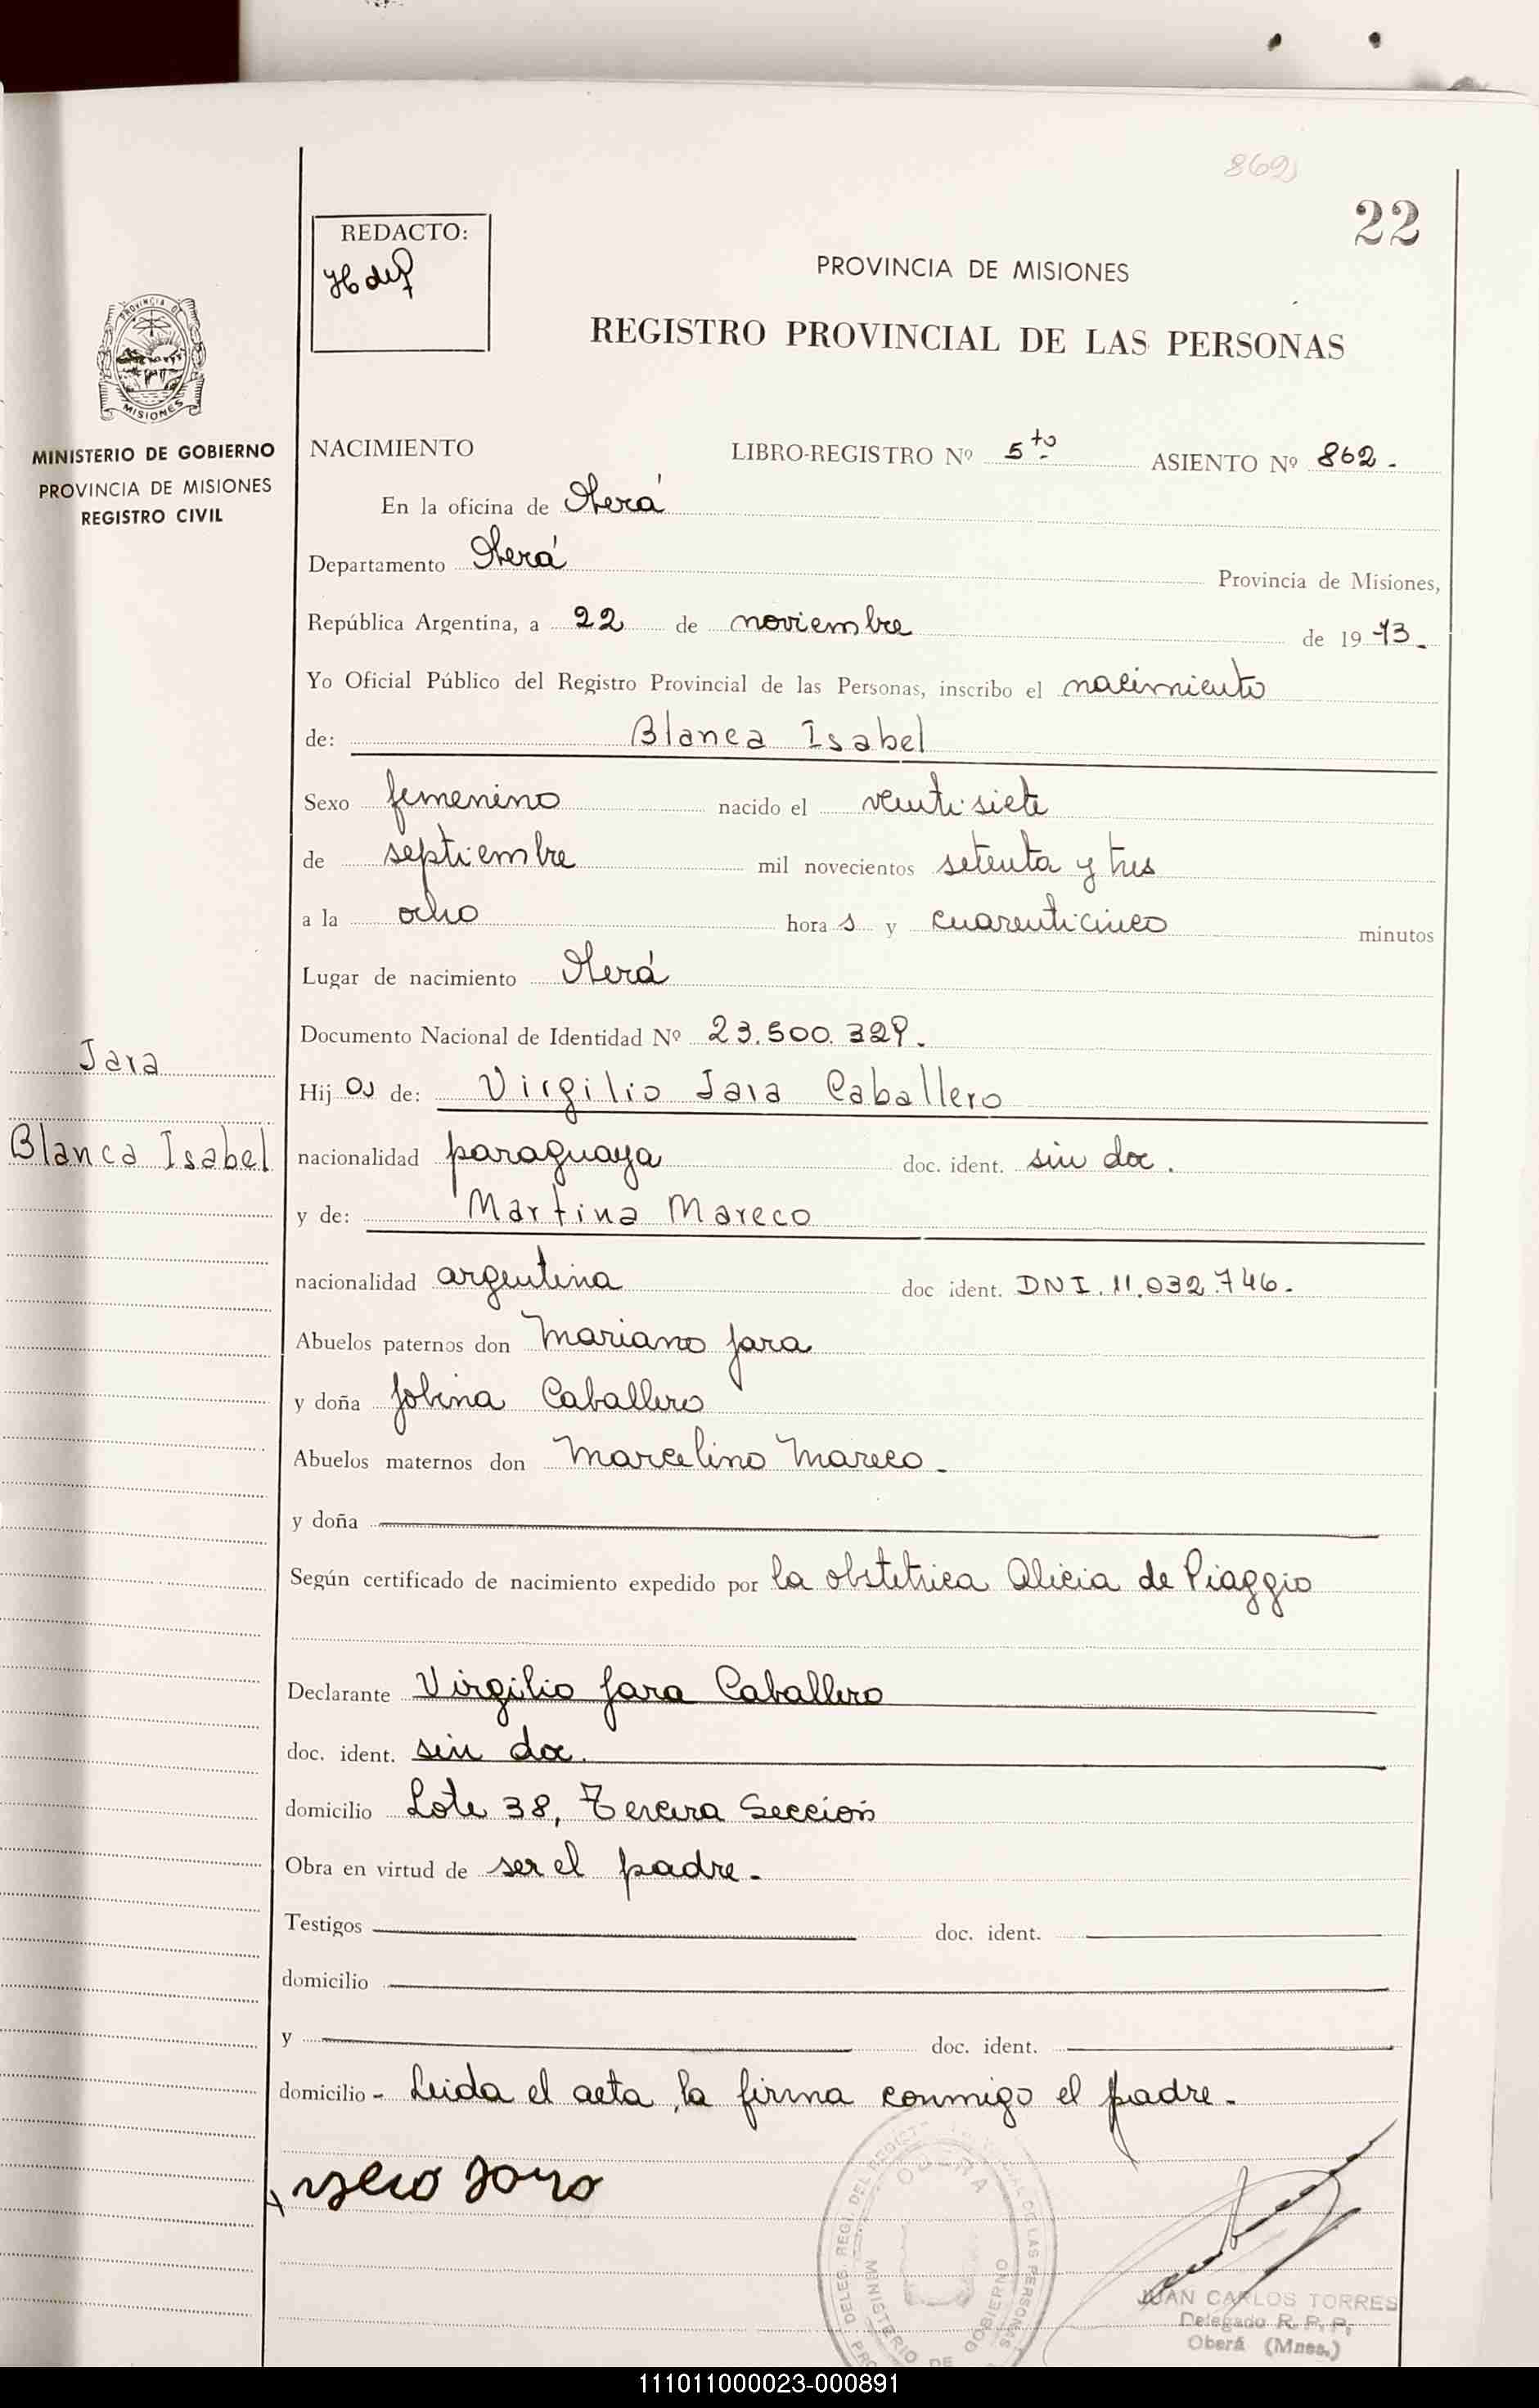 869
22
REDACTO:
PROVINCIA DE MISIONES
REGISTRO PROVINCIAL DE LAS PERSONAS
PROVINCIA DE
MISIONES
MINISTERIO DE GOBIERNO
PROVINCIA DE MISIONES
REGISTRO CIVIL
NACIMIENTO LIBRO-REGISTRO Nº 5to ASIENTO Nº 862.
En la oficina de Oberá
Departamento Oberá Provincia de Misiones,
República Argentina, a 22 de noviembre de 19 73.
Yo Oficial Público del Registro Provincial de las Personas, inscribo el nacimiento
de: Blanca Isabel
Sexo femenino nacido el veintisiete
de septiembre mil novecientos setenta y tres
a la ocho hora s y cuarenticinco minutos
Lugar de nacimiento Oberá
Documento Nacional de Identidad Nº 23.500.329.
Jara
Hij de: Virgilio Jara Caballero
Blanca Isabel
nacionalidad paraguaya doc. ident. sin doc.
y de: Martina Mareco
nacionalidad argentina doc ident. DNI. 11.032.746.
Abuelos paternos don Mariano Jara
y doña Jobina Caballero
Abuelos maternos don Marcelino Mareco.
y doña
Según certificado de nacimiento expedido por la obstetrica Alicia de Piaggio
Declarante Virgilio Jara Caballero
doc. ident. sin doc.
domicilio Lote 38, Tercera Sección
Obra en virtud de ser el padre.
Testigos doc. ident.
domicilio
y doc. ident.
domicilio - Leida el acta, la firma conmigo el padre.
JUAN CARLOS TORRES
Delegado R. P. P.
Oberá (Mnes.)
MINISTERIO DE GOBIERNO
111011000023-000891